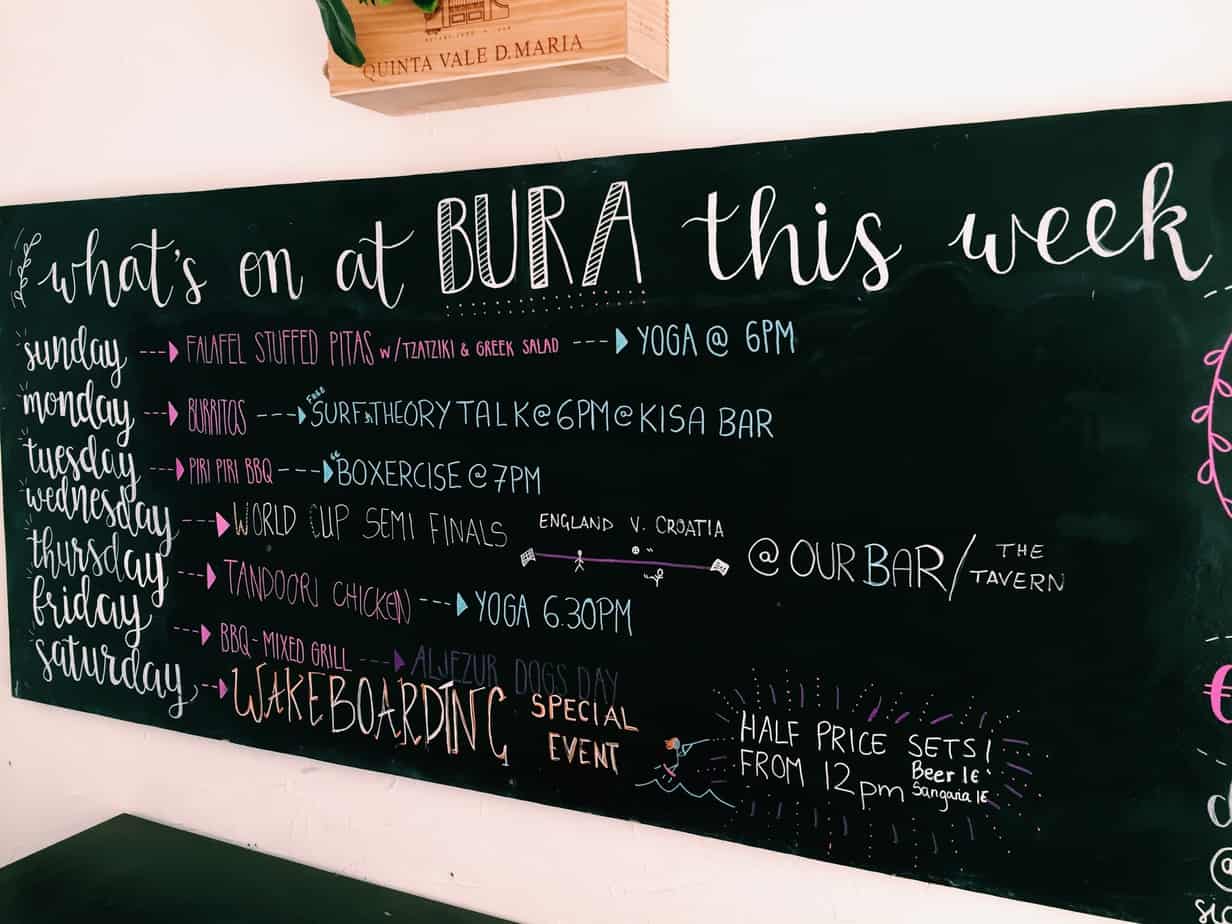 QUINTA VALE D. MARIA
what's on at BURA this week
sunday FALAFEL STUFFED PITAS w/TZATZIKI & GREEK SALAD YOGA @ 6PM
monday BURRITOS FREE SURF THEORY TALK @ 6PM @ KISA BAR
tuesday PIRI PIRI BBQ BOXERCISE @ 7PM
wednesday WORLD CUP SEMI FINALS ENGLAND V. CROATIA @ OUR BAR / THE TAVERN
thursday TANDOORI CHICKEN YOGA 6.30PM
friday BBQ - MIXED GRILL ALJEZUR DOGS DAY
saturday WAKEBOARDING SPECIAL EVENT
HALF PRICE SETS!
FROM 12pm
Beer 1€
Sangria 1€